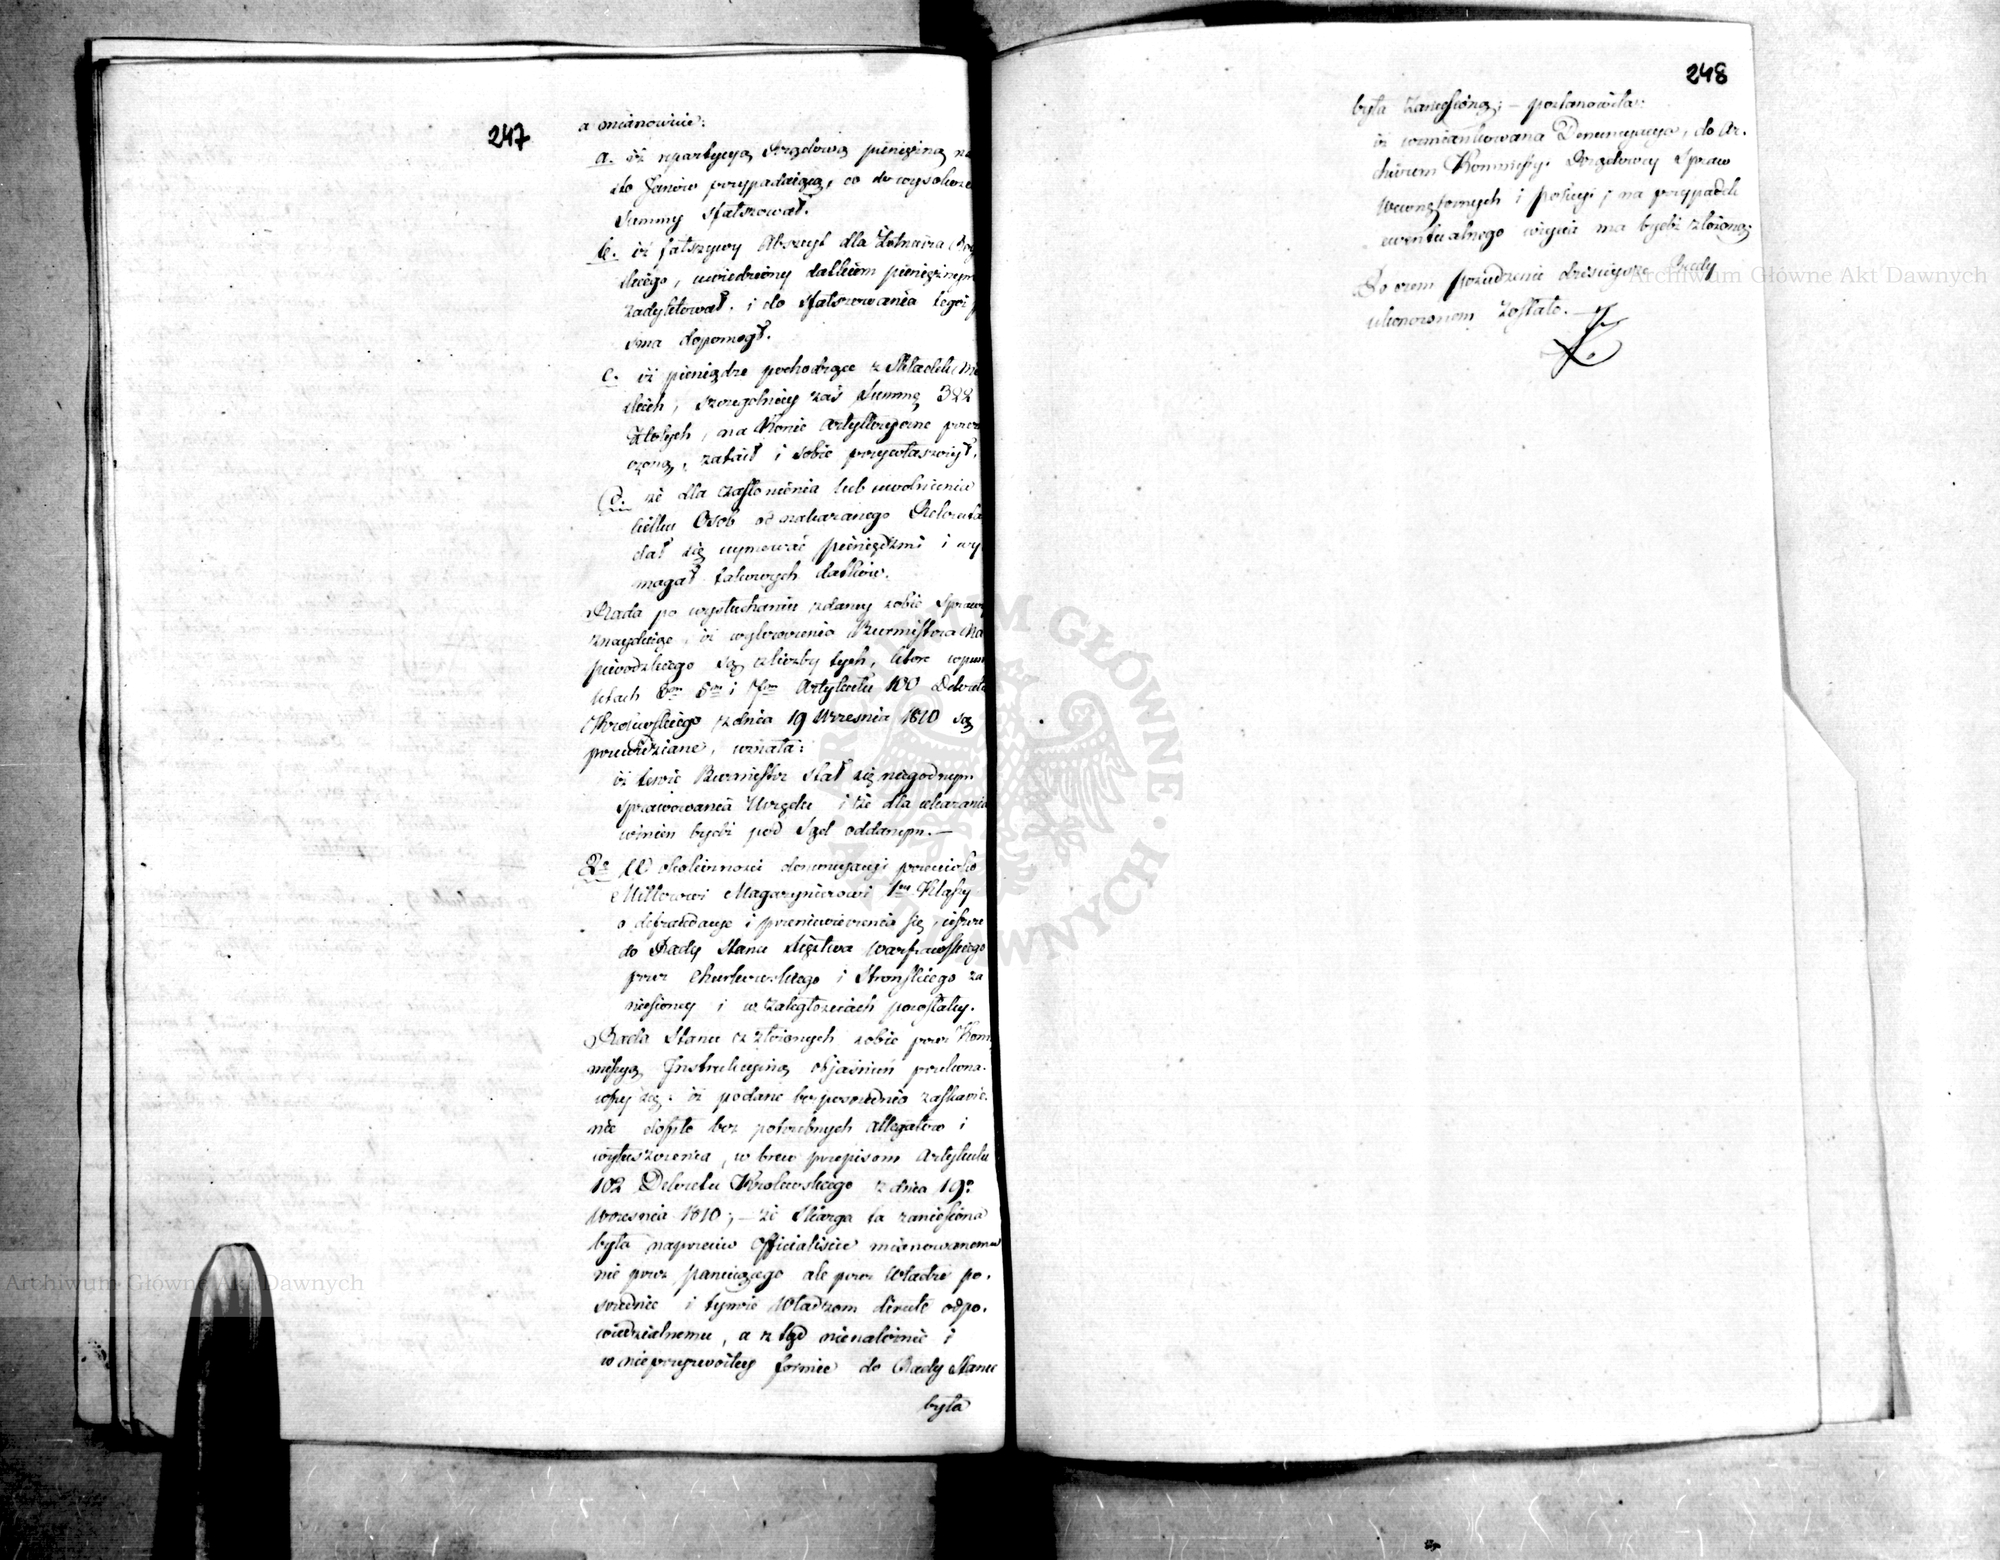 247
a mianowicie:
a. iż repartycyą Urzędową pieniężną na
sto Janów przypadaiącą, co do wysokości
Summy sfałszował.
b. iż fałszywy Abszyt dla Żołnierza
skiego, uwiedziony datkiem pieniężnym
zadyktował, i do sfałszowania tegoż
sma dopomogł.
c. iż pieniądze pochodzące z Składek
skich, szczególniey zaś Summę 322
Złotych, na Konie Artylleryczne
czoną, zataił i sobie przywłaszczył.
d. że dla zasłonienia lub uwolnienia
kilku Osob od nakazanego Rekruta
dał się uymować pieniędzmi i wy
magał takowych datków.
Rada po wysłuchaniu zdaney sobie Sprawy
znayduiąc, iż wykroczenia Burmistrza
piwodzkiego są z liczby tych, które w pun
ktach i Artykułu 100 Dekretu
Królewskiego z dnia 19 Września 1810 są
przewidziane, uznała:
iż tenże Burmistrz stał się niegodnym
sprawowania Urzędu i że dla ukarania
winien bydź pod Sąd oddanym. —
2o W okoliczności denuncyacyi przeciwko
Millerowi Magazynierowi 1ey Klassy
o defraudacye i przeniewierzenia się, wprost
do Rady Stanu Xięstwa Warszawskiego
przez i Strońskiego za
niesioney i w zaległościach pozostałey.
Rada Stanu z złożonych sobie przez Kom
missyą Instrukcyiną obiaśnień przekona
wszy się: iż podanie bezpośrednio zaskarże
nie doszło bez potrzebnych allegatow i
wyłuszczenia, w brew przepisom Artykułu
102 Dekretu Królewskiego z dnia 19o
Września 1810; — że Skarga ta zaniesiona
była naprzeciw Officialiście mianowanemu
nie przez panuiącego ale przez Władze po-
srednie i tymże Władzom directe odpo-
wiedzialnemu, a z tąd nienależnie i
w nieprzyzwoitey formie do Rady Stanu
była
248
była zaniesioną; — postanowiła:
iż wzmiankowana Denuncyacya, do Ar-
chiwum Kommissyi Rządowey Spraw
Wewnętrznych i Policyi, na przypadek
ewentualnego użycia ma bydź złożoną;
Po czem posiedzenie dzisieysze Rady
ukończonem zostało. —
Archiwum Główne Akt Dawnych
Archiwum Główne Akt Dawnych
ARCHIWUM GŁÓWNE · AKT DAWNYCH ·